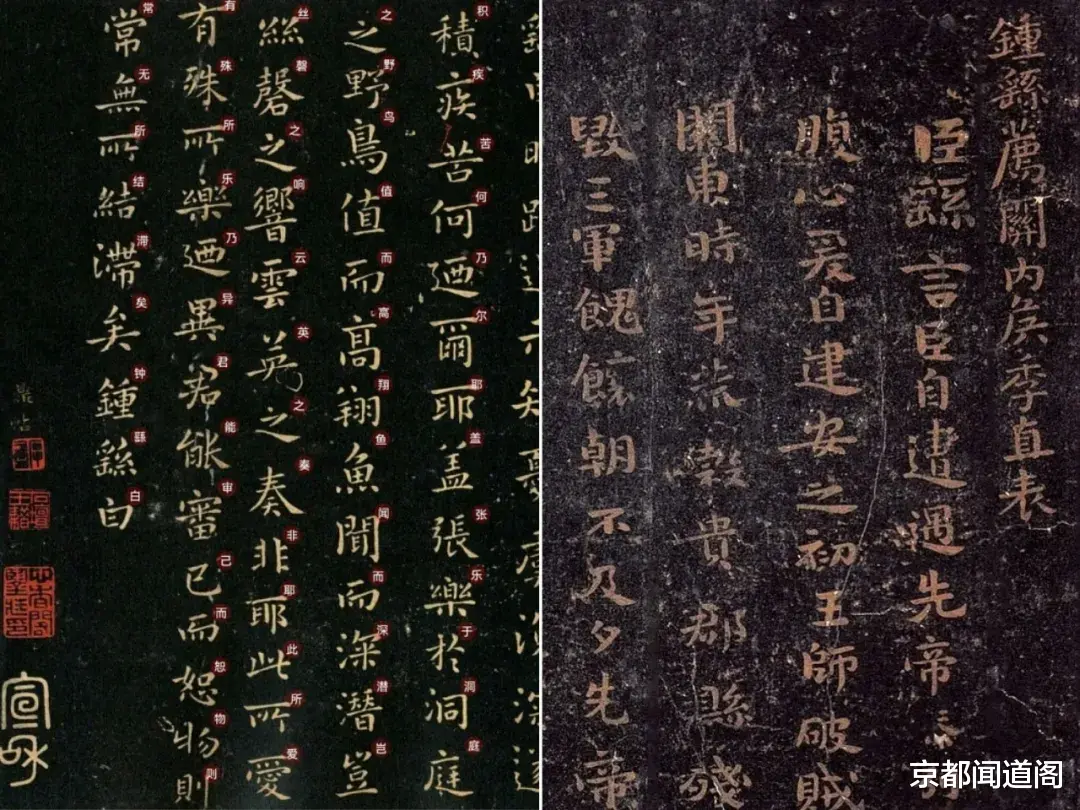 積疾苦何迺爾耶盖張樂於洞庭
积疾苦何乃尔耶盖张乐于洞庭
之野鳥值而高翔魚聞而深潛豈
之野鸟值而高翔鱼闻而深潜岂
絲磬之響雲英之奏非耶此所愛
丝磬之响云英之奏非耶此所爱
有殊所樂迺異君能審己而恕物則
有殊所乐乃异君能审己而恕物则
常無所結滯矣鍾繇白
常无所结滞矣钟繇白
宣和
鍾繇薦關内侯季直表
臣繇言臣自遭遇先帝
腹心爰自建安之初王師破賊
關東時年荒穀貴郡縣殘
毀三軍餽饟朝不及夕先帝
京都闻道阁